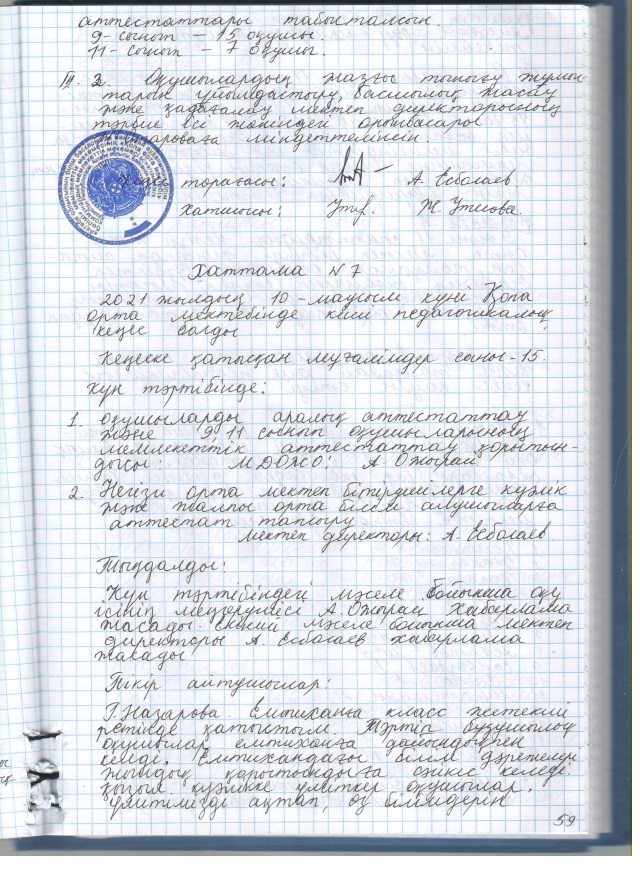 аттестаттары табысталсын.
9-сынып – 15 оқушы.
11-сынып – 7 оқушы.
III. 2. Оқушылардың жазғы тынығу жұмыс
тарын ұйымдастыру, басшылық жасау
және қадағалау мектеп директорының
тәрбие ісі жөніндегі орынбасары
міндеттелінсін.
Кеңес төрағасы: А. Есболаев
хатшысы: Ж. Утепова.
Хаттама N 7
2021 жылдың 10-маусым күні Қоға
орта мектебінде кіші педагогикалық
кеңес болды
Кеңеске қатысқан мұғалімдер саны-15.
Күн тәртібінде:
1. Оқушыларды аралық аттестаттау
және 9, 11 сынып оқушыларының
мемлекеттік аттестаттау қорытын-
дысы: МДОЖО: А Ожырай
2. Негізгі орта мектеп бітірушілерге куәлік
және жалпы орта білім алушыларға
аттестат тапсыру
мектеп директоры: А. Есболаев
Тыңдалды:
Күн тәртібіндегі мәселе бойынша оқу
ісінің меңгерушісі А. Ожырай хабарлама
жасады. Екінші мәселе бойынша мектеп
директоры А. Есболаев хабарлама
жасады
Пікір айтушылар:
Г. Назарова. Емтиханға класс жетекші
ретінде қатыстым. Тәртіп бұзушылық
оқушылар емтиханға дайындықпен
келеді. Емтихандағы білім дәрежелері
жылдық қорытындыға сәйкес келеді.
қызыл куәлікке үміткер оқушылар,
үмітімізді ақтап, өз білімдерін
59